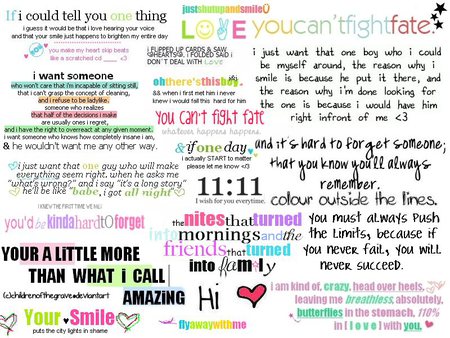 If i could tell you one thing
i guess it would be that i love hearing your voice
and that your smile just happens to brighten my entire day
you make my heart skip beats
like a scratched cd ____ <3
i want someone
who won't care that i'm incapable of sitting still,
that i can't grasp the concept of cleaning,
and i refuse to be ladylike.
someone who realizes
that half of the decisions i make
are usually ones i regret,
and i have the right to overreact at any given moment.
i want someone who knows how completely insane i am,
& he wouldn't want me any other way.
i just want that one guy who will make
everything seem right. when he asks me
"what's wrong?" and i say "it's a long story"
he'll be like "babe, i got all night"
I KNEW THE FIRST TIME WE MET
you'd be kinda hard to forget
YOUR A LiTTLE MORE
THAN WHAT i CALL
AMAZiNG
(c)childrenofthegrave@deviantart
Your Smile
puts the city lights in shame
justshutupandsmile
LOVE
i FLIPPED UP CARDS & SAW
i FOLDED & SAID i
DON'T DEAL WITH LOVE
ohthere'sthisboy
&& when i first met him i never
knew i would fall this hard for him
you can't fight fate
whatever happens happens.
&if one day
i actually START to matter
please let me know <3
11:11
I wish for you everytime.
the nites that turned
into mornings and the
friends that turned
into family
Hi
flyawaywithme
you can't fight fate.
i just want that one boy who i could
be myself around, the reason why i
smile is because he put it there, and
the reason why i'm done looking for
the one is because i would have him
right infront of me <3
and it's hard to forget someone;
that you know you'll always
remember.
colour outside the lines.
you must always push
the limits, because if
you never fail, you will
never succeed.
i am kind of, crazy, head over heels,
leaving me breathless, absolutely,
butterflies in the stomach, 110%
in [ l o v e ] with you,